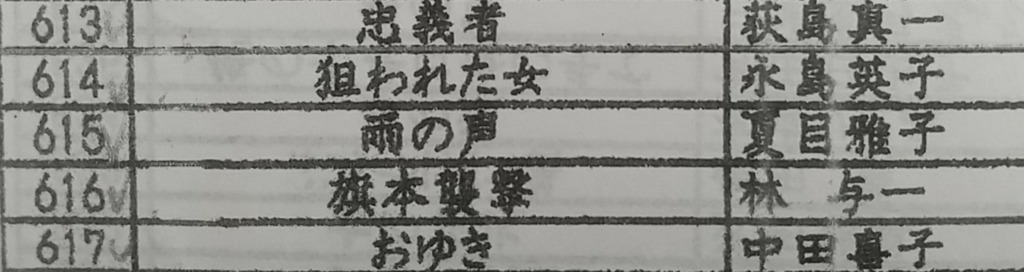 613 忠義者 荻島真一
614 狙われた女 永島英子
615 雨の声 夏目雅子
616 旗本襲撃 林 与一
617 おゆき 中田喜子